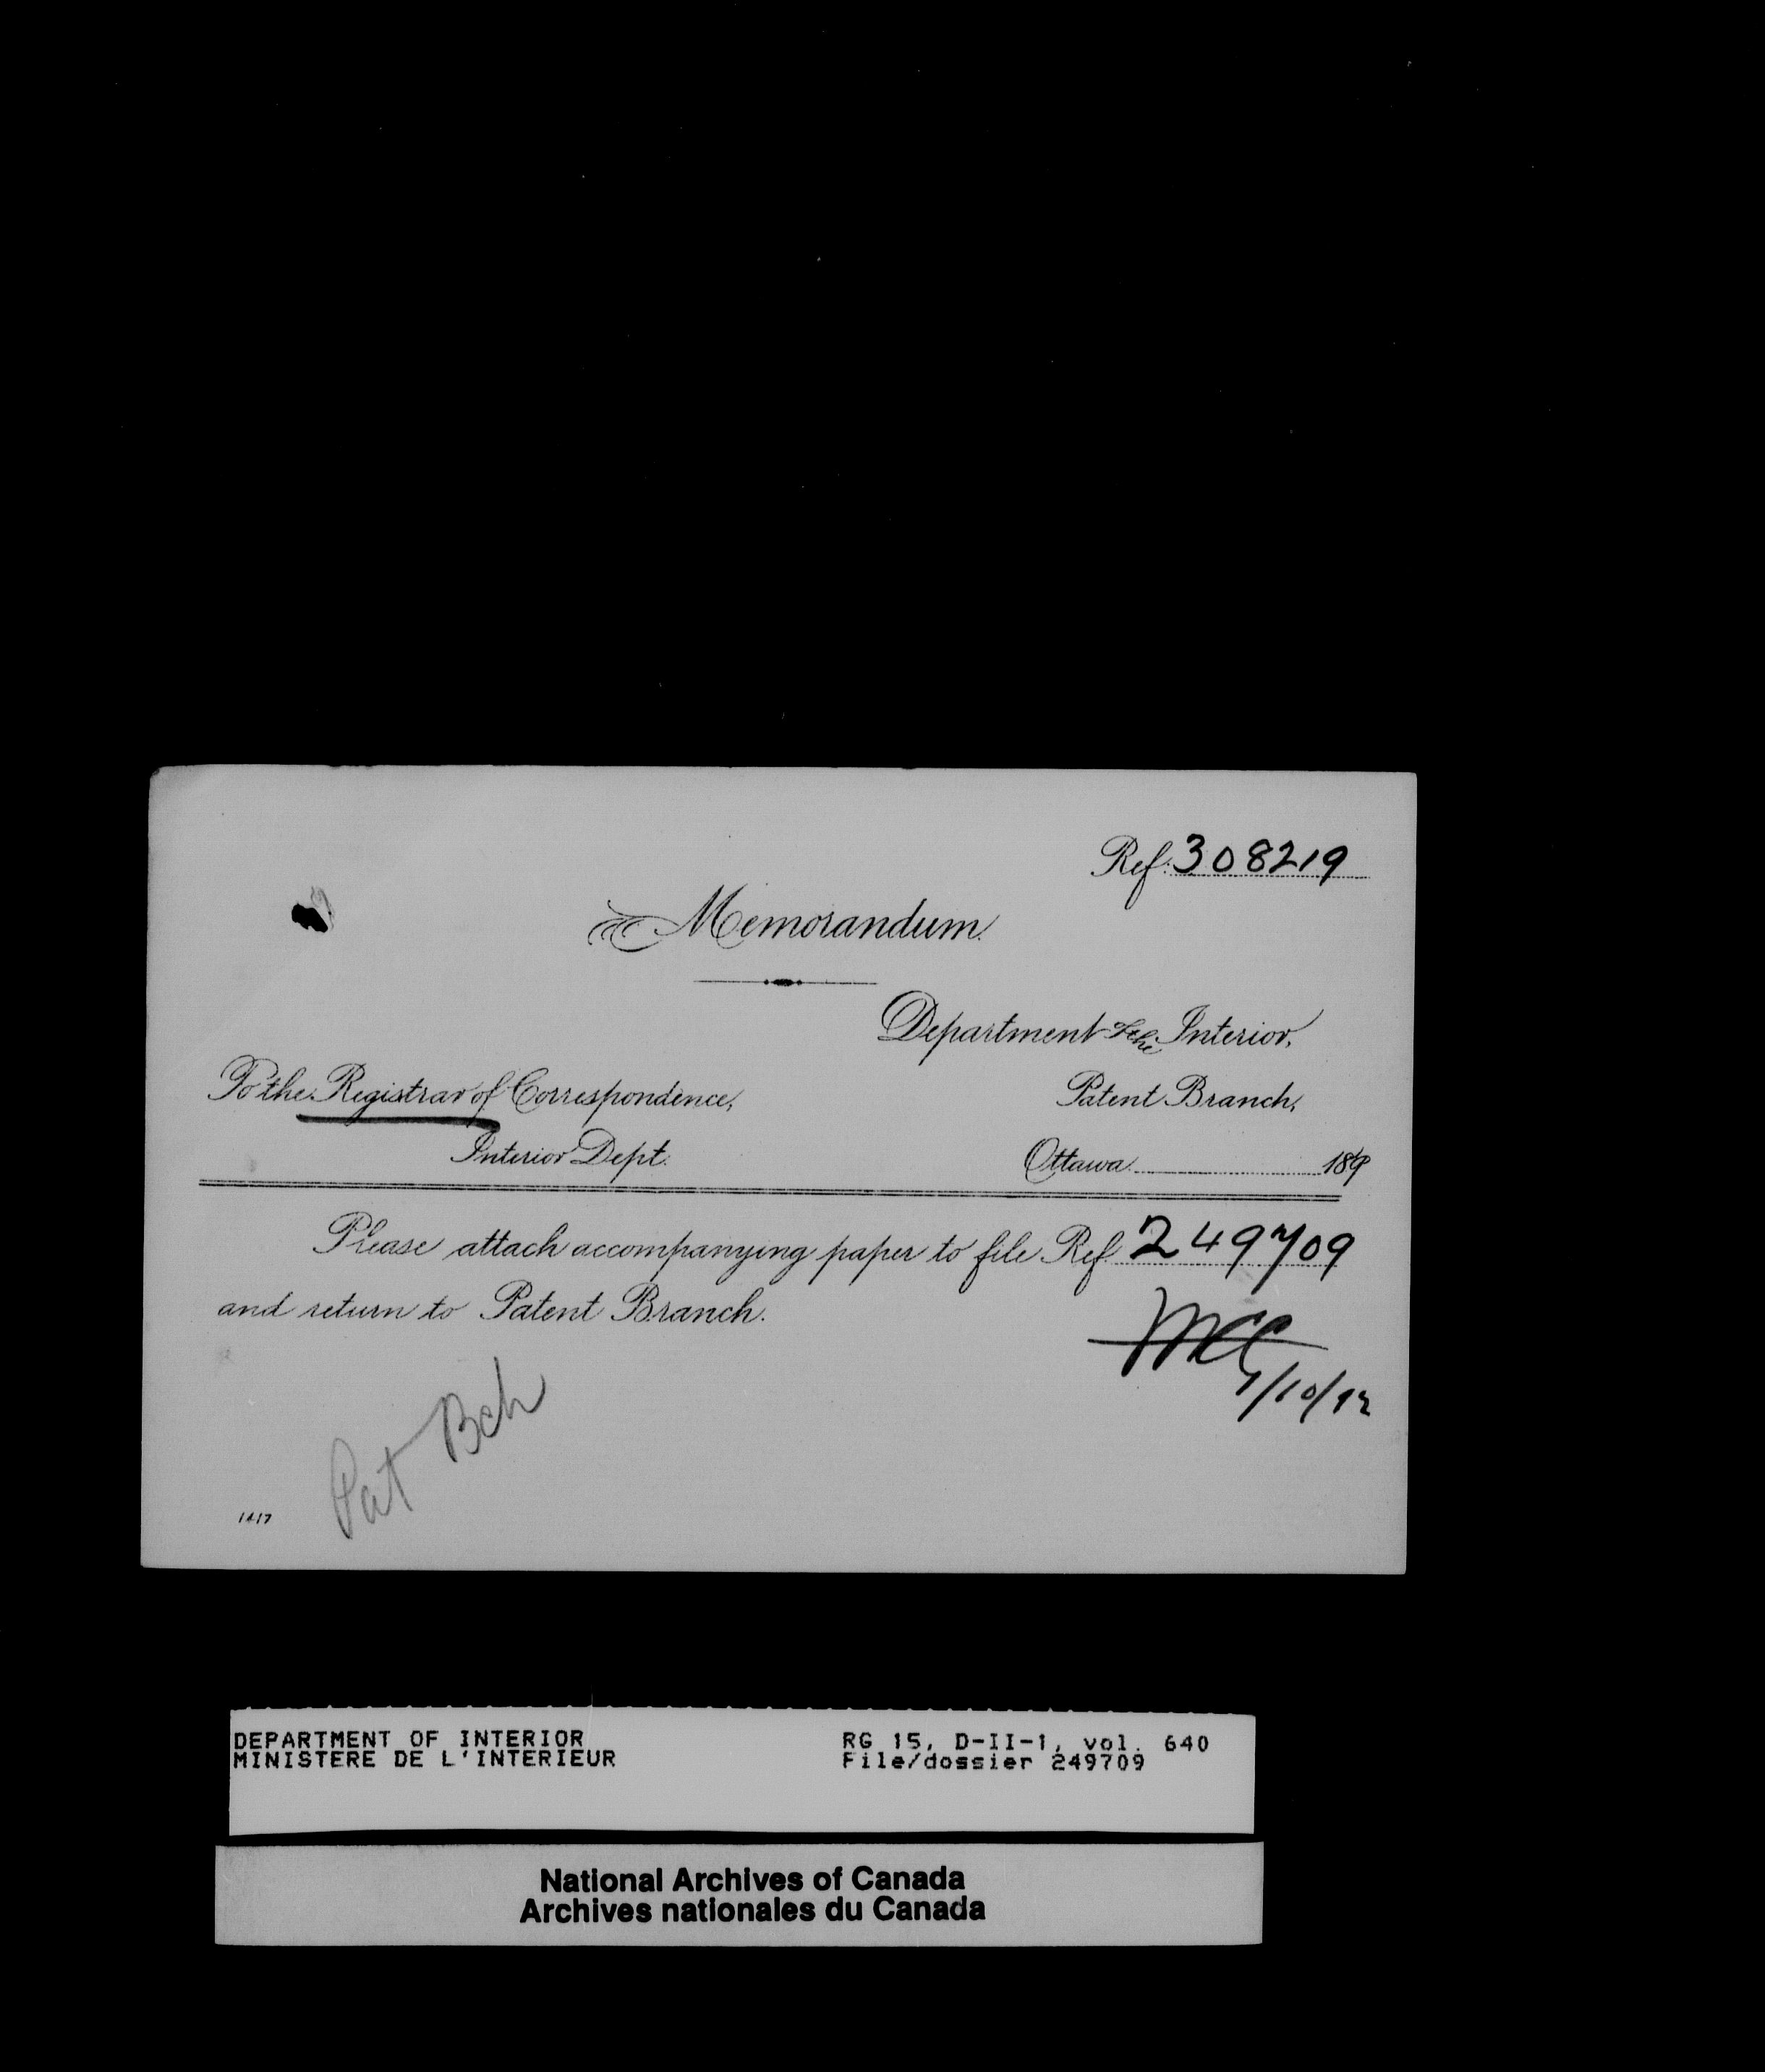 Ref. 308219
Memorandum.
Department of the Interior,
To the Registrar of Correspondence,
Patent Branch,
Interior Dept.
Ottawa 189
Please attach accompanying paper to file Ref. 249709
and return to Patent Branch.
/10/92
Pat Bch
1417
DEPARTMENT OF INTERIOR
MINISTERE DE L'INTERIEUR
RG 15, D-II-1, vol. 640
File/dossier 249709
National Archives of Canada
Archives nationales du Canada